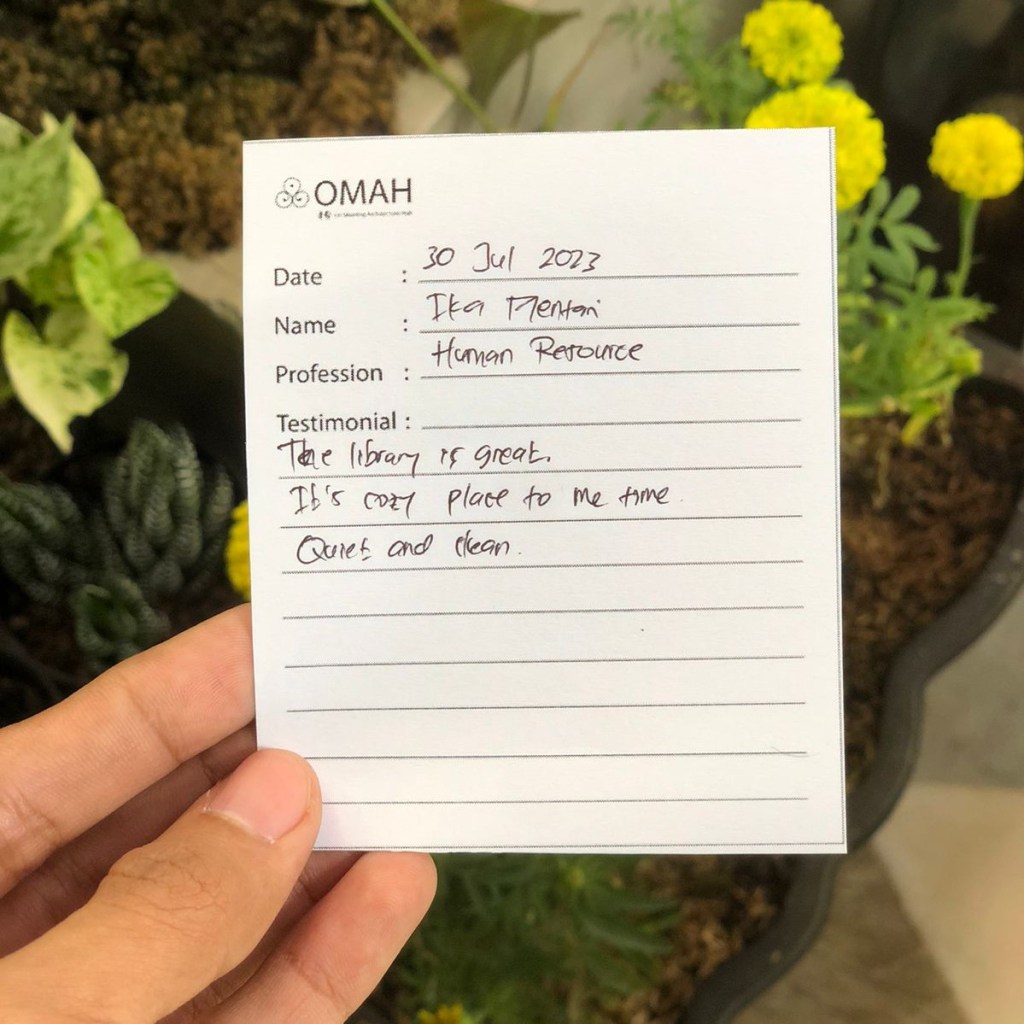 OMAH
Date : 30 Jul 2023
Name : Ika Mentari
Profession : Human Resource
Testimonial :
The library is great.
It's cozy place to me time.
Quiet and clean.